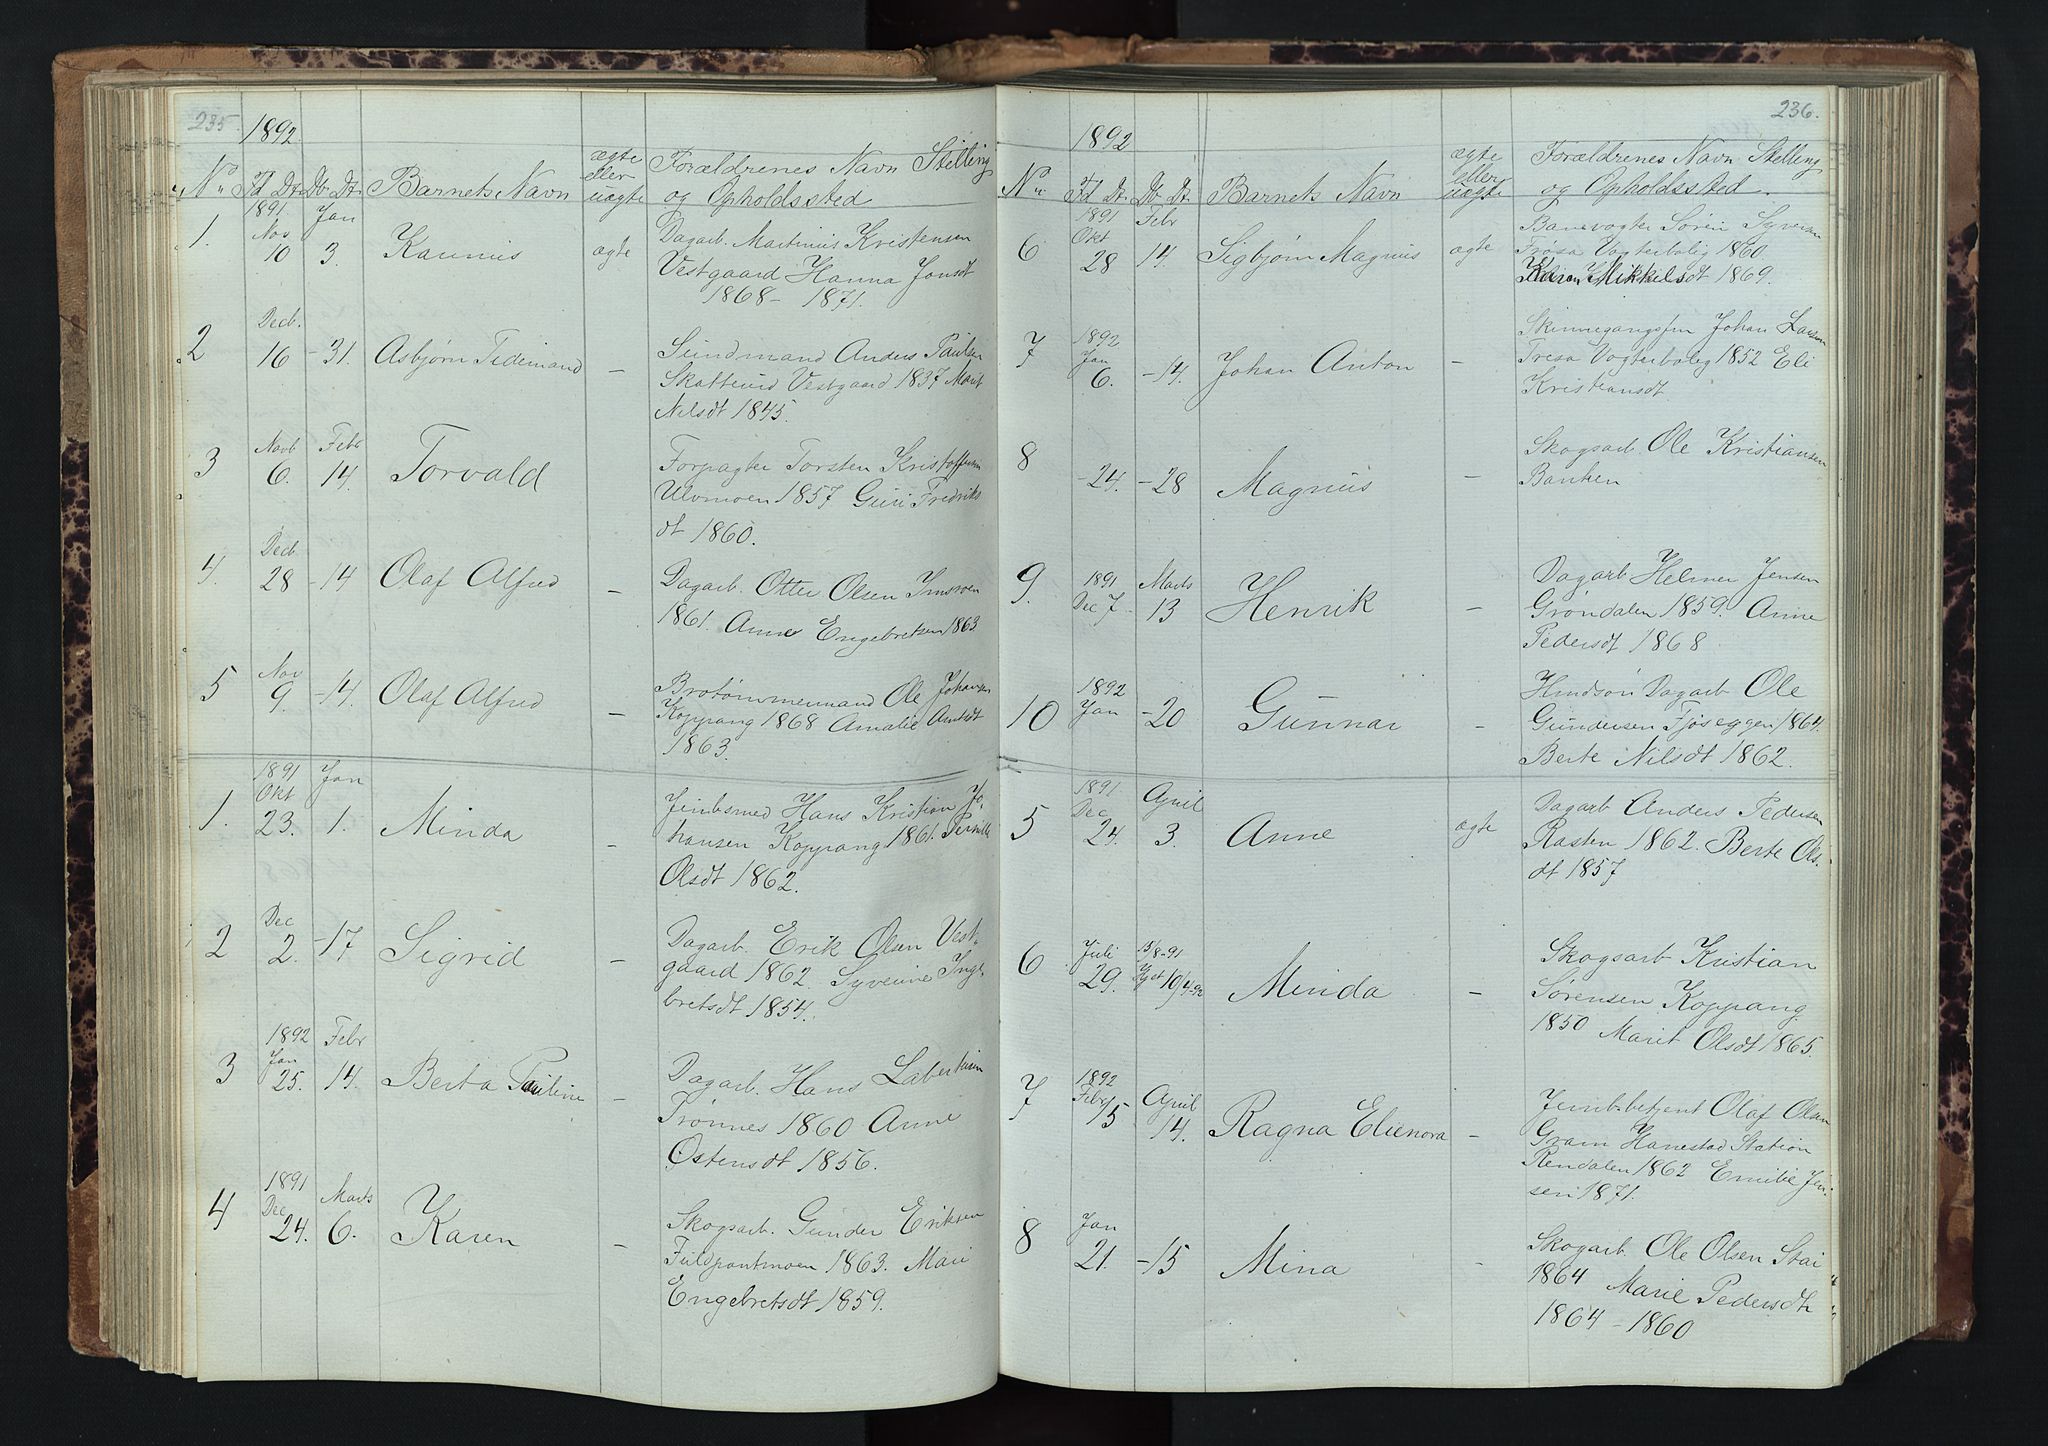 235
1892
No Fd Dt. Db Dt. Barnets Navn ægte eller uægte Forældrenes Navn Stilling og Opholdssted
1. 1891 Nov 10 Jan 3. ægte Dagarb. Martinius Kristensen
Vestgaard Hanna Jonsdt
1868 - 1871.
2 Decb. 16 - 31. Asbjørn Tidemand - Sundmand Anders Paulsen
Vestgaard 1837 Marit
Nilsdt 1845.
3 Novb 6. Febr 14. Torvald Forpagter Torsten Kristoffersen
Ulvmoen 1857 Guri Fredriks
dt 1860.
4. Decb. 28 - 14 Olaf Alfred - Dagarb. Otter Olsen Imsroen
1861. Anne Engebretsen 1863
5 Nov 9. - 14. Olaf Alfred - Brotømmermand Ole Johansen
Koppang 1868 Amalie Amtsdt
1863.
1. 1891 Okt 23. Jan 1. Minda - Jernbsmed Hans Kristian Jo-
hansen Koppang 1861. Pernille
Olsdt 1862.
2 Dec 2. - 17 Sigrid - Dagarb. Erik Olsen Vest-
gaard 1862. Syverine Inge
bretsdt 1854.
3 1892 Jan 25. Febr 14. Berta Pauline - Dagarb. Hans Labertsen
Trønnes 1860 Anne
Østensdt 1856.
4 1891 Dec 24. Marts 6. Karen - Skogsarb. Gunder Eriksen
1863. Mari
Engebretsdt 1859.
236.
1892
No Fd Dt. Db Dt. Barnets Navn ægte eller uægte Forældrenes Navn Stilling og Opholdssted
6 1891 Okt 28 Febr 14. Sigbjørn Magnus ægte Banevogter Søren Syversen
Vogterbolig 1860
Karen Mikkelsdt 1869.
7 1892 Jan 6. - 14. Johan Anton - Johan Larsen
Vogterbolig 1852 Eli
Kristiansdt
8 - 24. - 28 Magnus - Skogsarb. Ole Kristiansen
Banken
9. 1891 Dec 7. Marts 13 Henrik - Dagarb Helmer Jensen
Grøndalen 1859. Anne
Pedersdt 1868
10 1892 Jan - 20 Gunnar - Husdsøn Dagarb Ole
Gundersen Fjøseggen 1864.
Berte Nilsdt 1862.
5 1891 Dec 24. April 3. Anne ægte Dagarb Anders Pedersen
Rasten 1862. Berte Ols-
dt 1857
6 Juli 29. 15/8-91 10/4-92 Minda - Skogsarb Kristian
Sørensen Koppang
1850 Marit Olsdt 1865.
7 1892 Febr 15. April 14. Ragna Elienora - Jernb.betjent Olaf Olsen
Gram Hanestad Station
Rendalen 1862 Emilie Jen-
sen 1871.
8 Jan 21. - 15 Mina - Skogarb. Ole Olsen Stai
1864 Marie Pedersdt
1864 - 1860